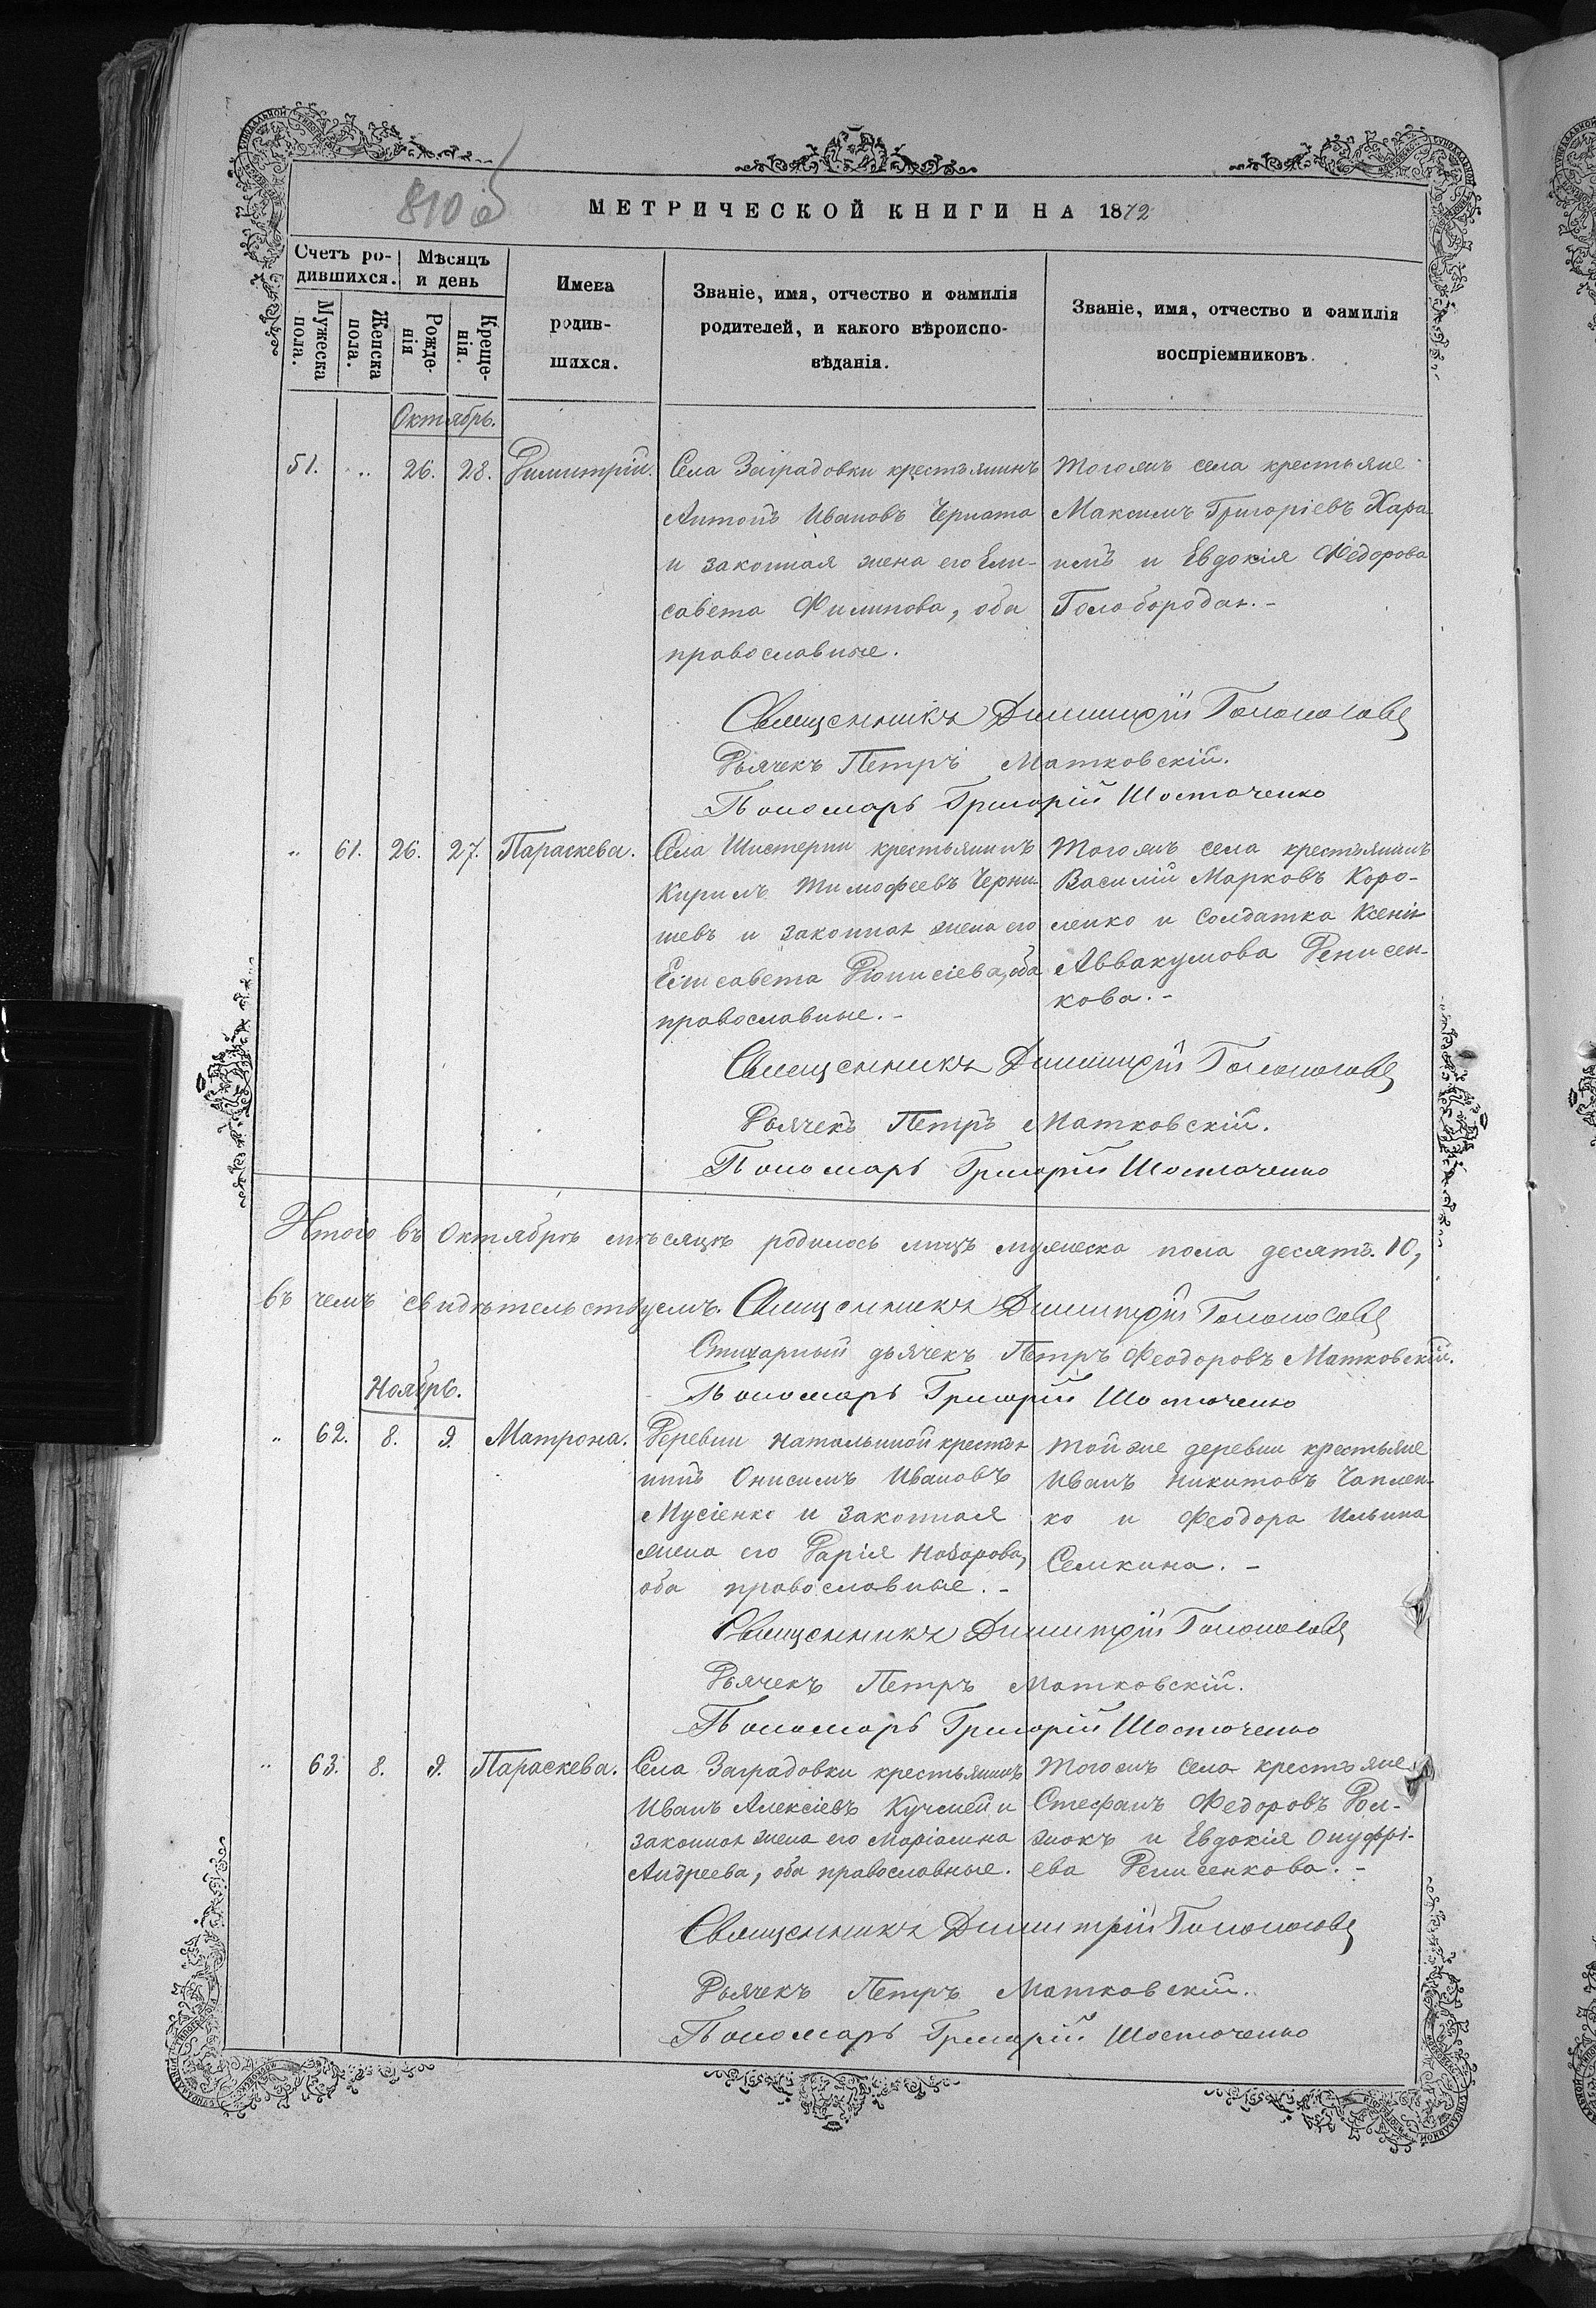 810 об
МЕТРИЧЕСКОЙ КНИГИ НА 1872
Счетъ ро-
дившихся.
Мѣсяцъ
и день
Мужеска
пола.
Женска
пола.
Рожде-
нія
Креще-
нія.
Имена
родив-
шихся.
Званіе, имя, отчество и фамилія
родителей, и какого вѣроиспо-
вѣданія.
Званіе, имя, отчество и фамилія
воспріемниковъ.
Октябрь.
51. " 26. 28. Димитрій.
Села Заградовки крестьянинъ
Антонъ Ивановъ Чернота
и законная жена его Ели-
савета Филипова, оба
православные.
Тогожъ села крестьяне
Максимъ Григоріевъ Хара
и Евдокія Федорова
Голобородая.-
Священникъ Димитрій Голоносовъ
Дьячекъ Петръ Матковскій.
Пономарь Григорій Шосточенко
" 61. 26. 27. Параскева.
Села Шистерни крестьянинъ
Кирилъ Тимофеевъ Черны-
шевъ и законная жена его
Елисавета Діонисіева, оба
православные.-
Тогожъ села крестьянинъ
Василій Марковъ Коро-
ленко и солдатка Ксенія
Аввакумова Денисен-
кова.-
Священникъ Димитрій Голоносовъ
Дьячекъ Петръ Матковскій.
Пономарь Григорій Шосточенко
Итого въ Октябрѣ мѣсяцѣ родилось лицъ мужеска пола десять. 10,
въ чемъ свидѣтельствуемъ. Священникъ Димитрій Голоносовъ
Стихарный дьячекъ Петръ Феодоровъ Матковскій.
Пономарь Григорій Шосточенко
Ноябрь.
" 62. 8. 9. Матрона.
Деревни Натальиной крестья
нинъ Онисимъ Ивановъ
Мусіенко и законная
жена его Дарія Назарова,
оба православные.-
Той же деревни крестьяне
Иванъ Никитовъ Чаплен-
ко и Феодора Ильина
Семкина.-
Священникъ Димитрій Голоносовъ
Дьячекъ Петръ Матковскій.
Пономарь Григорій Шосточенко
" 63. 8. 9. Параскева.
Села Заградовки крестьянинъ
Иванъ Алексіевъ Кучмей и
законная жена его Маріамна
Андреева, оба православные.
Тогожъ села крестьяне
Стефанъ Федоровъ
и Евдокія Онуфрі-
ева Денисенкова.-
Священникъ Димитрій Голоносовъ
Дьячекъ Петръ Матковскій.
Пономарь Григорій Шосточенко